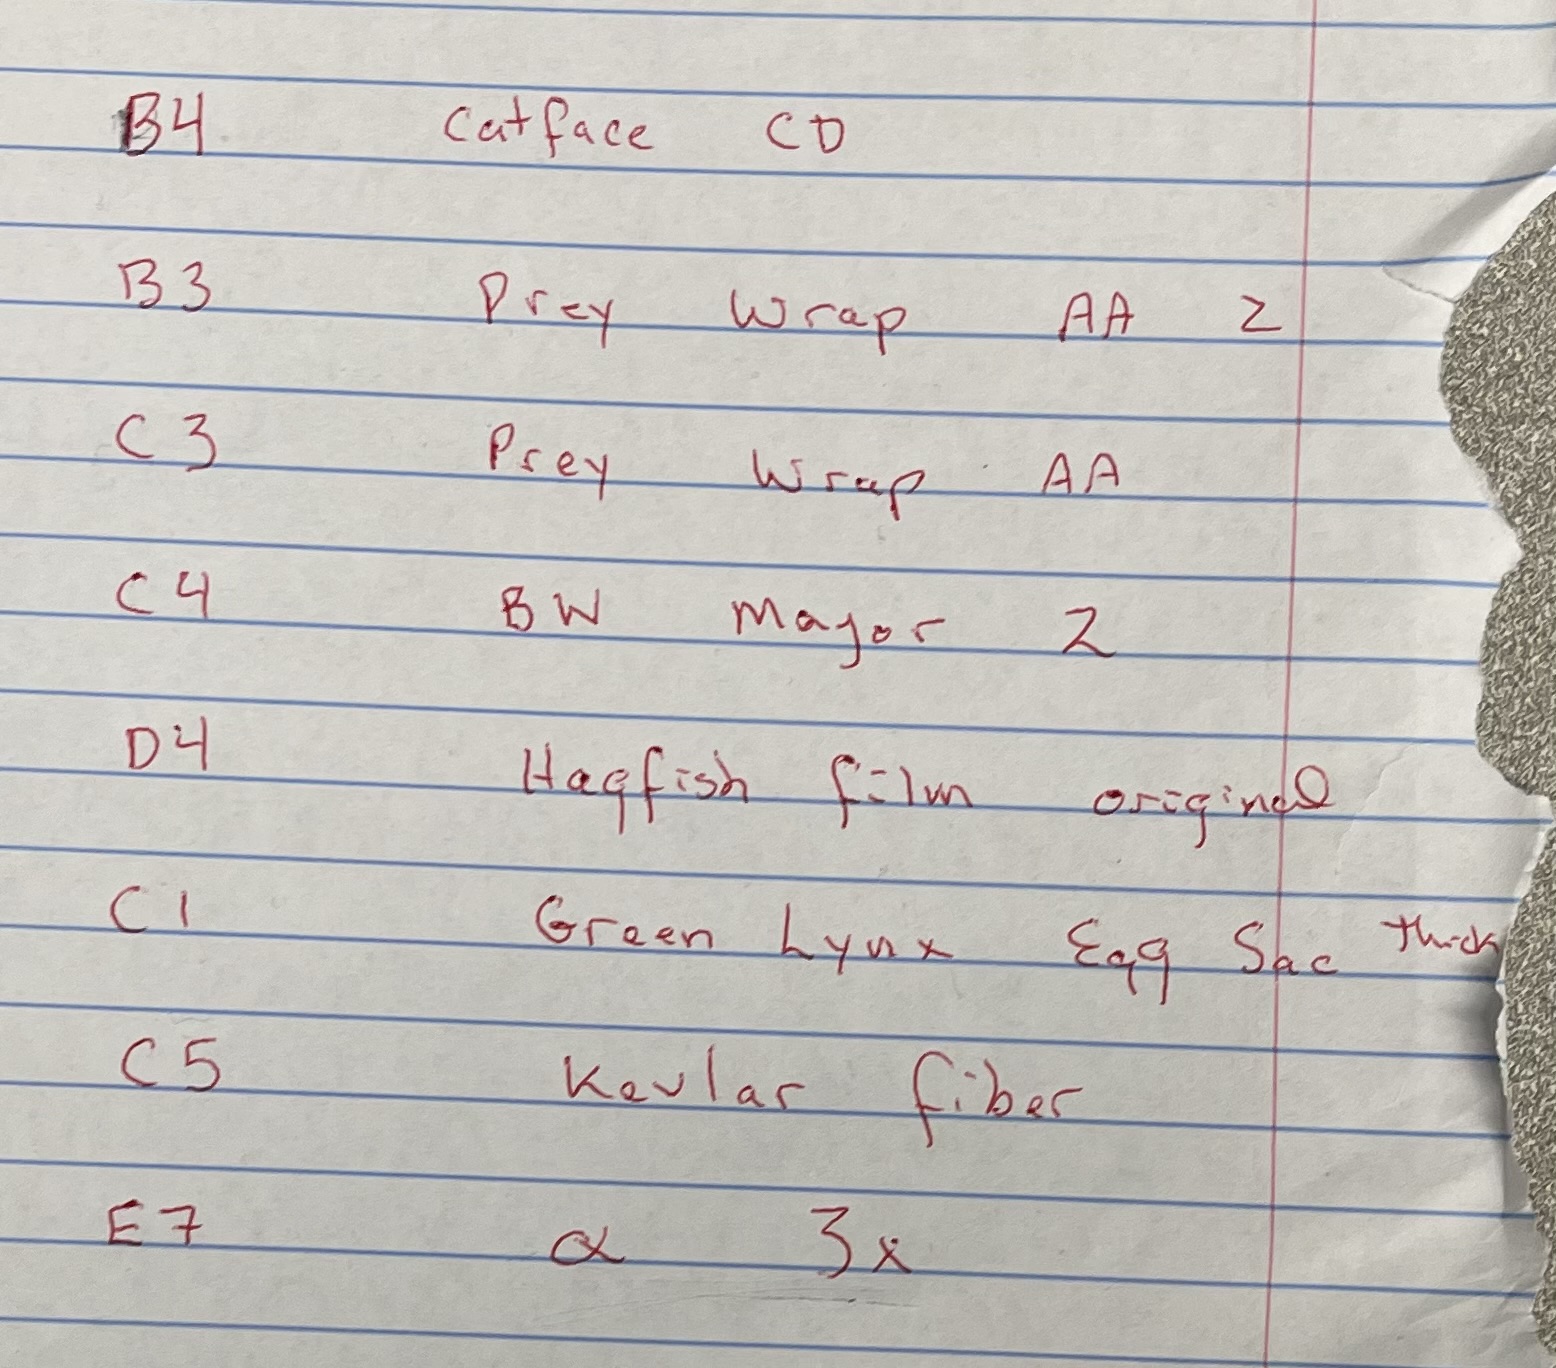 B4 Catface CD
B3 Prey Wrap AA 2
C3 Prey Wrap AA
C4 BW Major 2
D4 Hagfish film original
C1 Green Lynx Egg Sac Thick
C5 Kevlar fiber
E7 α 3x